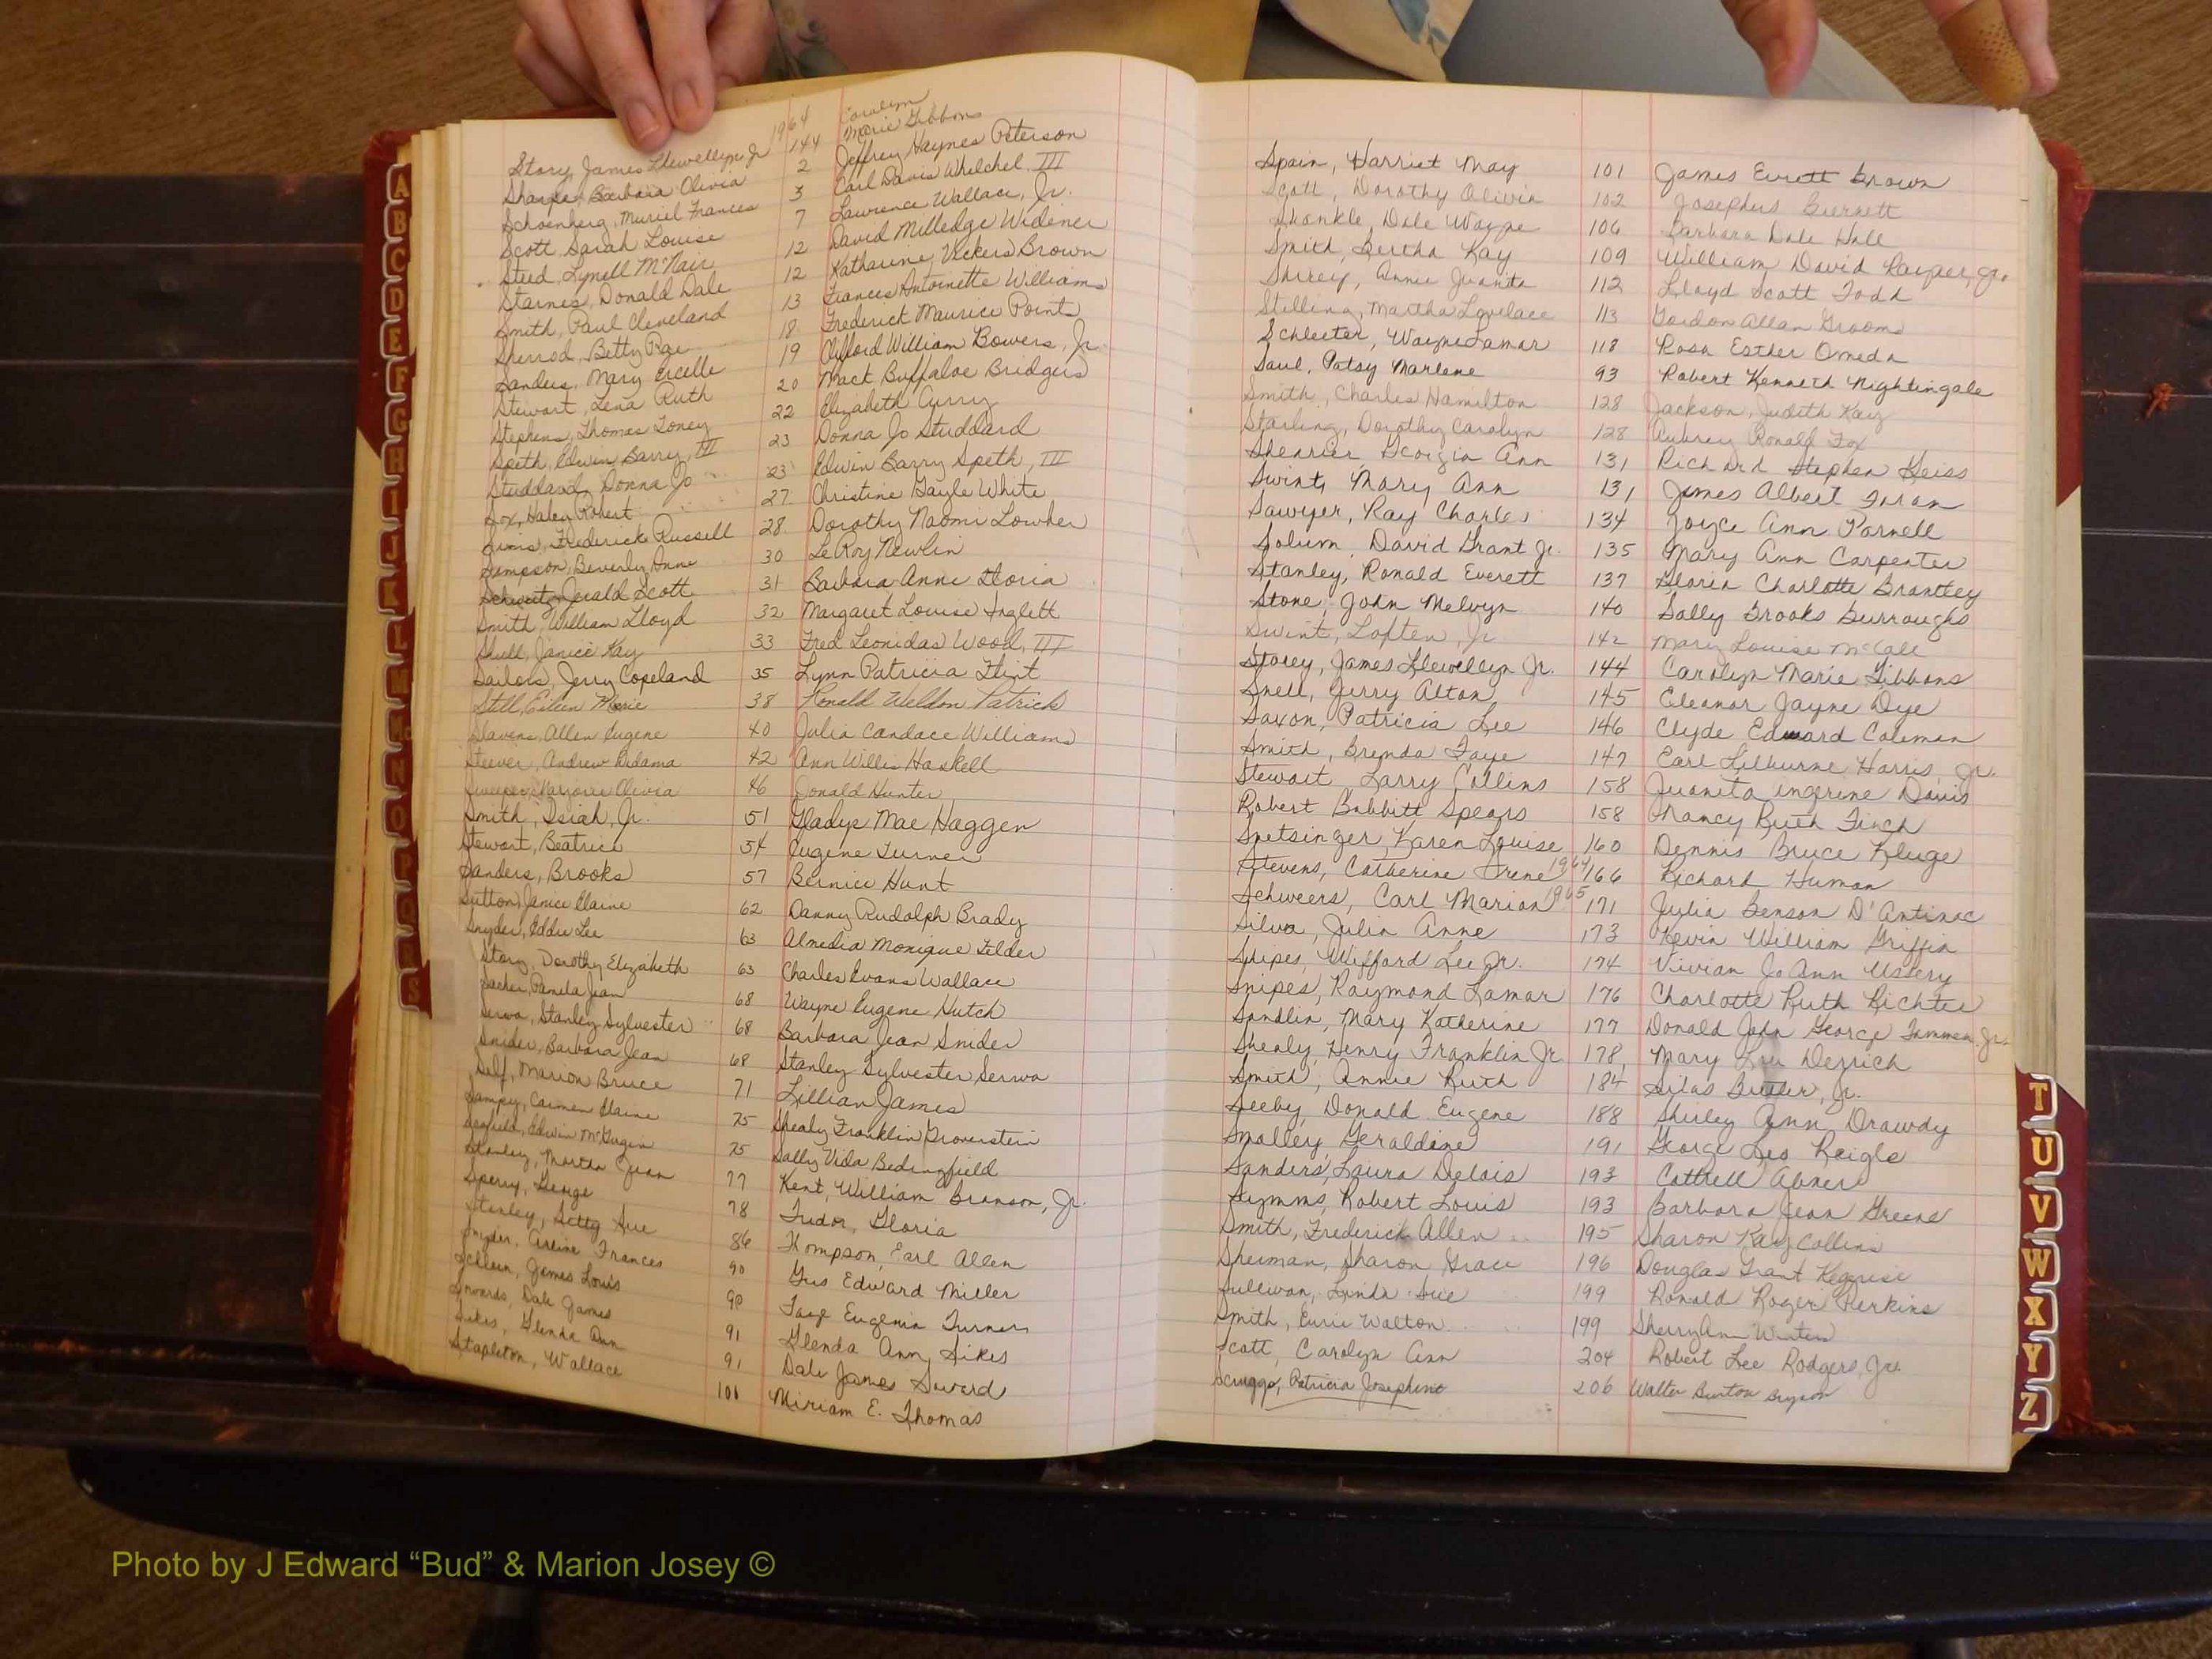 1964 Carolyn
Story, James Llewellyn Jr 144 Marie Gibbons
Sharpe, Barbara Olivia 2 Jeffrey Haynes Peterson
Schoenberg, Muriel Frances 3 Carl Davis Whelchel, III
Scott, Sarah Louise 7 Lawrence Wallace, Jr.
Steed, Lynell McNair 12 David Milledge Widener
Starnes, Donald Dale 12 Katharine Vickers Brown
Smith, Paul Cleveland 13 Frances Antoinette Williams
Sherrod, Betty Rae 18 Frederick Maurice Points
Sanders, Mary Ercelle 19 Clifford William Bowers, Jr.
Stewart, Lena Ruth 20 Mack Buffaloe Bridgers
Stephens, Thomas Toney 22 Elizabeth Curry
Speth, Edwin Barry, III 23 Donna Jo Studdard
Studdard, Donna Jo 23 Edwin Barry Speth, III
Haley Robert 27 Christine Gayle White
Sims, Frederick Russell 28 Dorothy Naomi Lowher
Beverly Anne 30 LeRoy Newlin
Jerald Scott 31 Barbara Anne
Smith, William Lloyd 32 Margaret Louise Inglett
Shull, Janice Kay 33 Fred Leonidas Wood, III
Sailors, Jerry Copeland 35 Lynn Patricia Flint
Still, Eileen Marie 38 Ronald Weldon Patrick
Allen Eugene 40 Julia Candace Williams
Andrew 42 Ann Willis Haskell
Marjorie Olivia 46 Donald Hunter
Smith, Isiah, Jr. 51 Gladys Mae Haggen
Stewart, Beatrice 54 Eugene Turner
Sanders, Brooks 57 Bernice Hunt
Sutton, Janice Elaine 62 Danny Rudolph Brady
Snyder, Eddie Lee 63 Almedia Monique
Story, Dorothy Elizabeth 63 Charles Evans Wallace
Pamela Jean 68 Wayne Eugene Hutch
Serwa, Stanley Sylvester 68 Barbara Jean Snider
Snider, Barbara Jean 68 Stanley Sylvester Serwa
Self, Marion Bruce 71 Lillian James
Carmen Elaine 75 Shealy Franklin Grovenstein
Edwin 75 Sally Vida Bedingfield
Stanley, Martha Jean 77 Kent, William Branson, Jr.
Sperry, George 78 Tudor, Gloria
Stanley, Betty Sue 86 Thompson, Earl Allen
Snyder, Arline Frances 90 Gus Edward Miller
James Louis 90 Faye Eugenia Turner
Dale James 91 Glenda Ann Sikes
Sikes, Glenda Ann 91 Dale James
Stapleton, Wallace 100 Miriam E. Thomas
Spain, Harriet May 101 James Evrett Brown
Scott, Dorothy Olivia 102 Josephus Burnett
Shankle Dale Wayne 106 Barbara Dale Hall
Smith, Bertha Kay 109 William David Raiper, Jr.
Shirey, Annie Juanita 112 Lloyd Scott Todd
Stelling, Martha Lovelace 113 Gordon Allan Grooms
Schleeter, Wayne Lamar 118 Rosa Esther Omeda
Saul, Patsy Marlene 93 Robert Kenneth Nightingale
Smith, Charles Hamilton 128 Jackson, Judith Kay
Starling, Dorothy Carolyn 128 Aubrey Ronald Fox
Shearer Georgia Ann 131 Richard Stephen Geiss
Swint, Mary Ann 131 James Albert
Sawyer, Ray Charles 134 Joyce Ann Parnell
Solum, David Grant Jr. 135 Mary Ann Carpenter
Stanley, Ronald Everett 137 Gloria Charlotte Brantley
Stone, John Melvyn 140 Sally Brooks Burroughs
Swint, Loften, Jr 142 Mary Louise McCall
Storey, James Llewellyn Jr. 144 Carolyn Marie Gibbons
Snell, Jerry Alton 145 Eleanor Jayne Dye
Saxon, Patricia Lee 146 Clyde Edward Coleman
Smith, Brenda Faye 147 Earl Lilburne Harris, Jr.
Stewart Larry Collins 158 Juanita Davis
Robert Babbitt Spears 158 Nancy Ruth Finch
Snetsinger, Karen Louise 160 Dennis Bruce Kluge
Stevens, Catherine Irene 1964 166 Richard Human
Schweers, Carl Marion 1965 171 Julia Benson D'Antinac
Silva, Julia Anne 173 Kevin William Griffin
Snipes, Wifford Lee Jr. 174 Vivian JoAnn Ussery
Snipes, Raymond Lamar 176 Charlotte Ruth Richter
Sandlin, Mary Katherine 177 Donald John George Jr.
Shealy Henry Franklin Jr 178 Mary Lou Derrick
Smith, Annie Ruth 184 Silas Butler, Jr.
Seeby, Donald Eugene 188 Shirley Ann Drawdy
Smalley, Geraldine 191 George Leo Reigle
Sanders, Laura Delois 193 Cottrell Abner
Symms, Robert Louis 193 Barbara Jean Greene
Smith, Frederick Allen 195 Sharon Kay Collins
Sherman, Sharon Grace 196 Douglas Grant
Sullivan, Linda Sue 199 Ronald Roger Perkins
Smith, Walton 199 Sherry Ann Winters
Scott, Carolyn Ann 204 Robert Lee Rodgers, Jr.
Scruggs, Patricia Josephine 206 Walter Burton Bryson
A
B
C
D
E
F
G
H
I
J
K
L
M
Mc
N
O
P
Q
R
S
T
U
V
W
X
Y
Z
Photo by J Edward “Bud” & Marion Josey ©